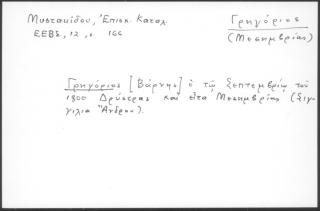 Μυστακίδου, Ἐπισκ. Καταλ.
Γρηγόριος
ΕΕΒΣ, 12, 166
(Μεσημβρίας)
Γρηγόριος [Βάρνης] ὁ τῷ Σεπτεμβρίῳ τοῦ
1800 Δρύστρας καὶ εἶτα Μεσημβρίας (Σιγ-
γίλια Ἄνδρου).